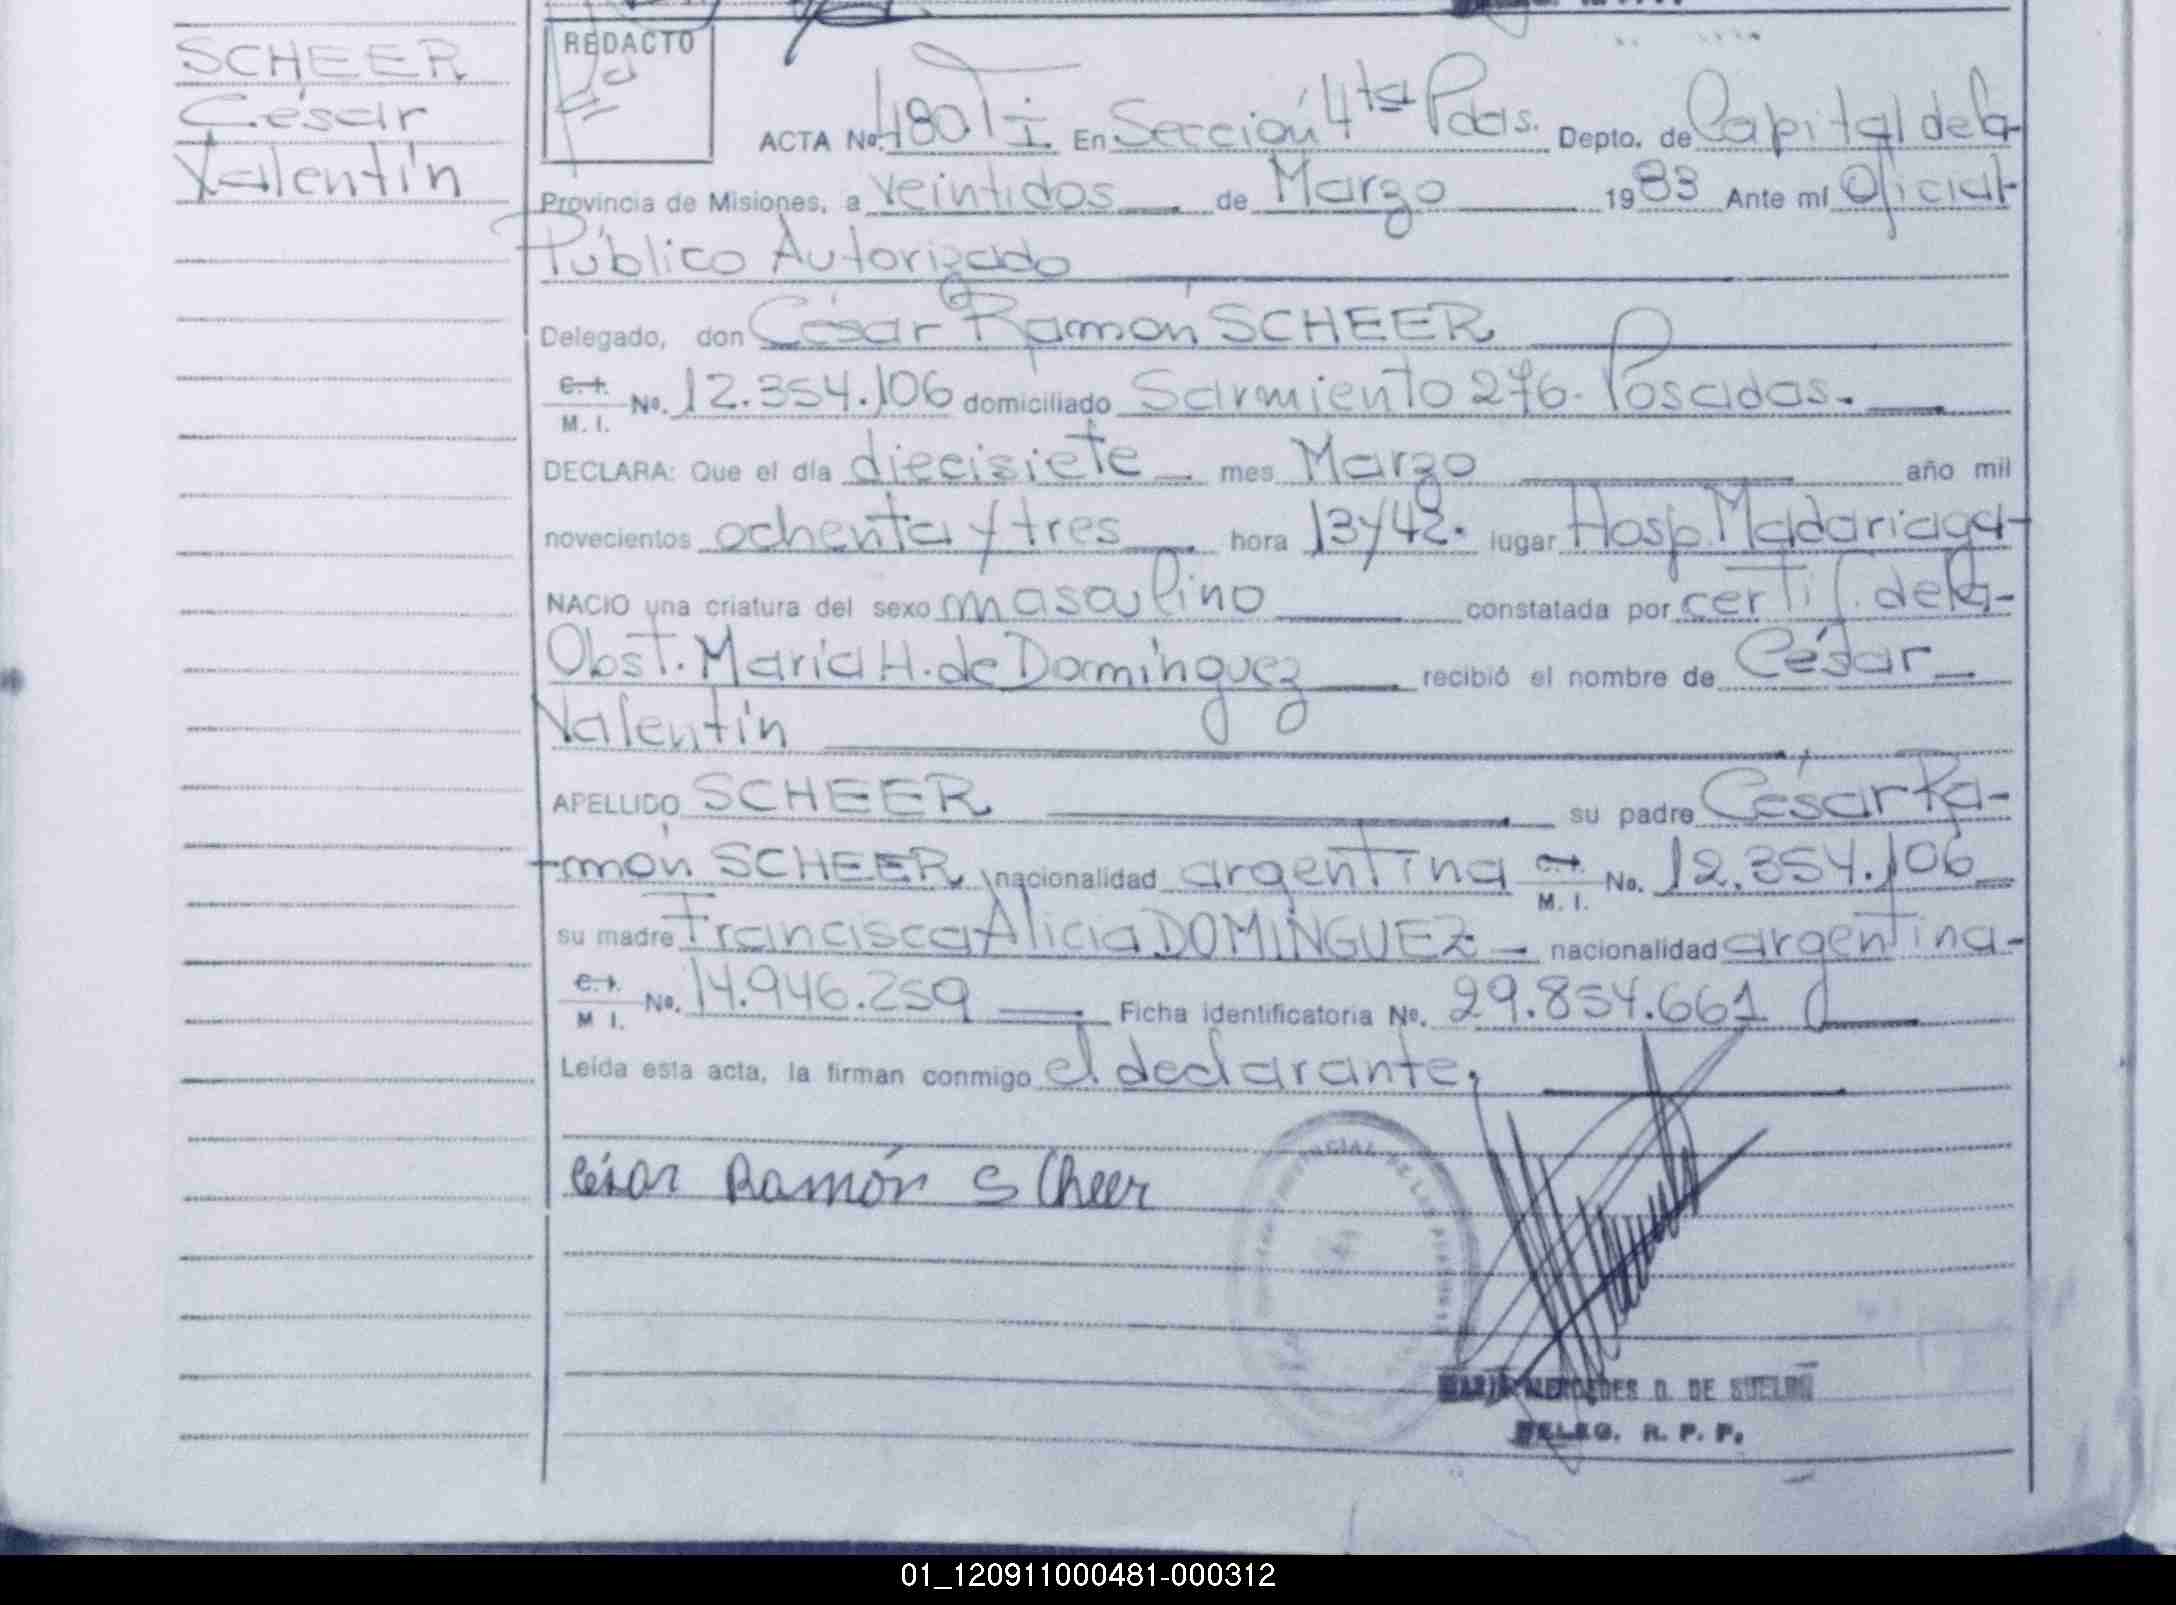 SCHEER
César
Valentín
REDACTO
ACTA No. 480 T I En Sección 4ta Pdas. Depto. de Capital de la
Provincia de Misiones, a veintidos de Marzo 1983 Ante mí Oficial
Público Autorizado
Delegado, don César Ramón SCHEER
C. I. M. I. No. 12.354.106 domiciliado Sarmiento 276. Posadas.
DECLARA: Que el día diecisiete mes Marzo año mil
novecientos ochenta y tres hora 13y42. lugar Hosp. Madariaga
NACIO una criatura del sexo masculino constatada por certif. de la
Obst. María H. de Domínguez recibió el nombre de César
Valentín
APELLIDO SCHEER su padre César Ra-
món SCHEER, nacionalidad argentina C. I. M. I. No. 12.354.106
su madre Francisca Alicia DOMINGUEZ nacionalidad argentina
C. I. M I. No. 14.946.259 Ficha identificatoria No. 29.854.661
Leída esta acta, la firman conmigo el declarante.
César Ramón Scheer
PROVINCIAL DE LAS PERSONAS
MARIA MERCEDES D. DE
DELEG. R. P. P.
01_120911000481-000312